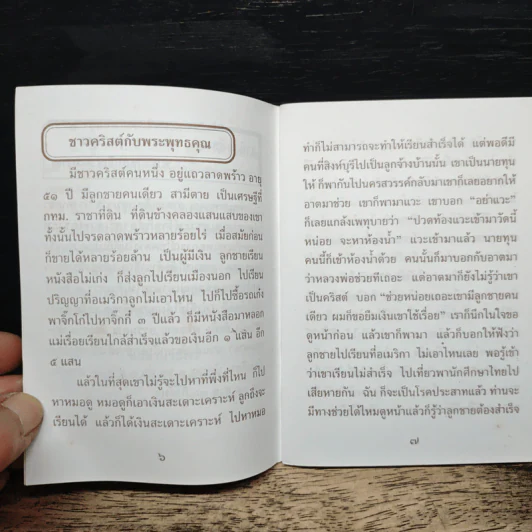 ชาวคริสต์กับพระพุทธคุณ
มีชาวคริสต์คนหนึ่ง อยู่แถวลาดพร้าว อายุ
๕๑ ปี มีลูกชายคนเดียว สามีตาย เป็นเศรษฐีที่
กทม. ราชาที่ดิน ที่ดินข้างคลองแสนแสบของเขา
ทั้งนั้นไปจรดลาดพร้าวหลายร้อยไร่ เมื่อสมัยก่อน
ก็ขายได้หลายร้อยล้าน เป็นผู้มีเงิน ลูกชายเรียน
หนังสือไม่เก่ง ก็ส่งลูกไปเรียนเมืองนอก ไปเรียน
ปริญญาที่อเมริกาลูกไม่เอาไหน ไปก็ไปซื้อรถเก๋ง
พาจิ๊กโก๋ไปหาจิ๊กกี๋ ๓ ปีแล้ว ก็มีหนังสือมาหลอก
แม่เรื่อยเรียนใกล้สำเร็จแล้วขอเงินอีก ๑ แสน อีก
๕ แสน
แล้วในที่สุดเขาไม่รู้จะไปหาที่พึ่งที่ไหน ก็ไป
หาหมอดู หมอดูก็เอาเงินสะเดาะเคราะห์ ลูกถึงจะ
เรียนได้ แล้วก็ได้เงินสะเดาะเคราะห์ ไปหาหมอ
๖
ทำก็ไม่สามารถจะทำให้เรียนสำเร็จได้ แต่พอดีมี
คนที่สิงห์บุรีไปเป็นลูกจ้างบ้านนั้น เขาเป็นนายทุน
ให้ ก็พากันไปนครสวรรค์กลับมาเขาก็เลยอยากให้
อาตมาช่วย เขาก็พามาแวะ เขาบอก “อย่าแวะ”
ก็เลยแกล้งเพทุบายว่า “ปวดท้องแวะเข้ามาวัดนี้
หน่อย จะหาห้องน้ำ” แวะเข้ามาแล้ว นายทุน
คนนี้ก็เข้าห้องน้ำด้วย คนนั้นก็มาบอกกับอาตมา
ว่าหลวงพ่อช่วยทีเถอะ แต่อาตมาก็ยังไม่รู้ว่าเขา
เป็นคริสต์ บอก “ช่วยหน่อยเถอะเขามีลูกชายคน
เดียว ผมก็ขอยืมเงินเขาใช้เรื่อย” เราก็นึกในใจขอ
ดูหน้าก่อน แล้วเขาก็พามา แล้วก็บอกให้ฟังว่า
ลูกชายไปเรียนที่อเมริกา ไม่เอาไหนเลย พอรู้เข้า
ว่าเขาเรียนไม่สำเร็จ ไปเที่ยวพานักศึกษาไทยไป
เสียหายกัน ฉัน ก็จะเป็นโรคประสาทแล้ว ท่านจะ
มีทางช่วยได้ไหมดูหน้าแล้วก็รู้ว่าลูกชายต้องสำเร็จ
๗